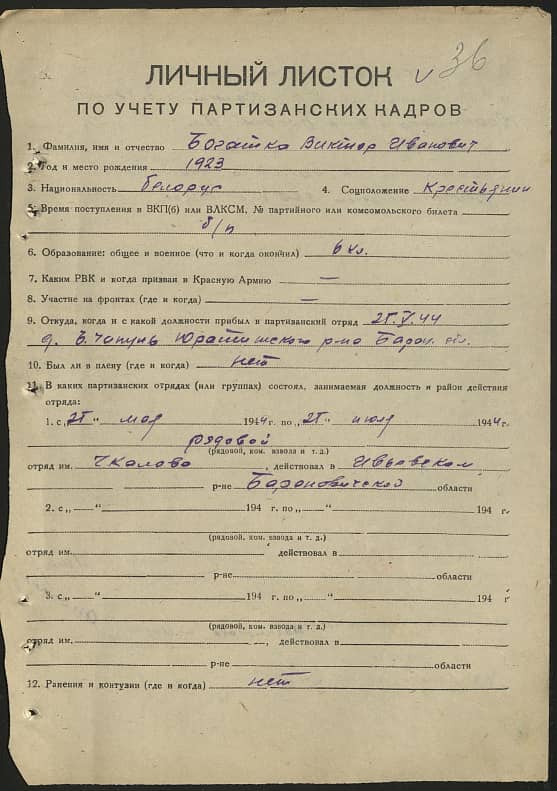 36
ЛИЧНЫЙ ЛИСТОК
ПО УЧЕТУ ПАРТИЗАНСКИХ КАДРОВ
1. Фамилия, имя и отчество Богатка Виктор Иванович
2. Год и место рождения 1923
3. Национальность белорус 4. Соцположение Крестьянин
5. Время поступления в ВКП(б) или ВЛКСМ, № партийного или комсомольского билета
б/п
6. Образование: общее и военное (что и когда окончил) 6 кл.
7. Каким РВК и когда призван в Красную Армию —
8. Участие на фронтах (где и когда) —
9. Откуда, когда и с какой должности прибыл в партизанский отряд 25.V.44
д. Юратишского р-на Баран. обл.
10. Был ли в плену (где и когда) нет
11. В каких партизанских отрядах (или группах) состоял, занимаемая должность и район действия
отряда:
1. с „25“ мая 1944 г. по „25“ июля 1944 г.
рядовой
(рядовой, ком. взвода и т. д.)
отряд им. Чкалова, действовал в Ивьевском
р-не Барановичской области
2. с „—“ 194 г. по „—“ 194 г.
(рядовой, ком. взвода и т. д.)
отряд им. действовал в
р-не области
3. с „—“ 194 г. по „—“ 194 г.
(рядовой, ком. взвода и т. д.)
отряд им. , действовал в
р-не области
12. Ранения и контузии (где и когда) нет